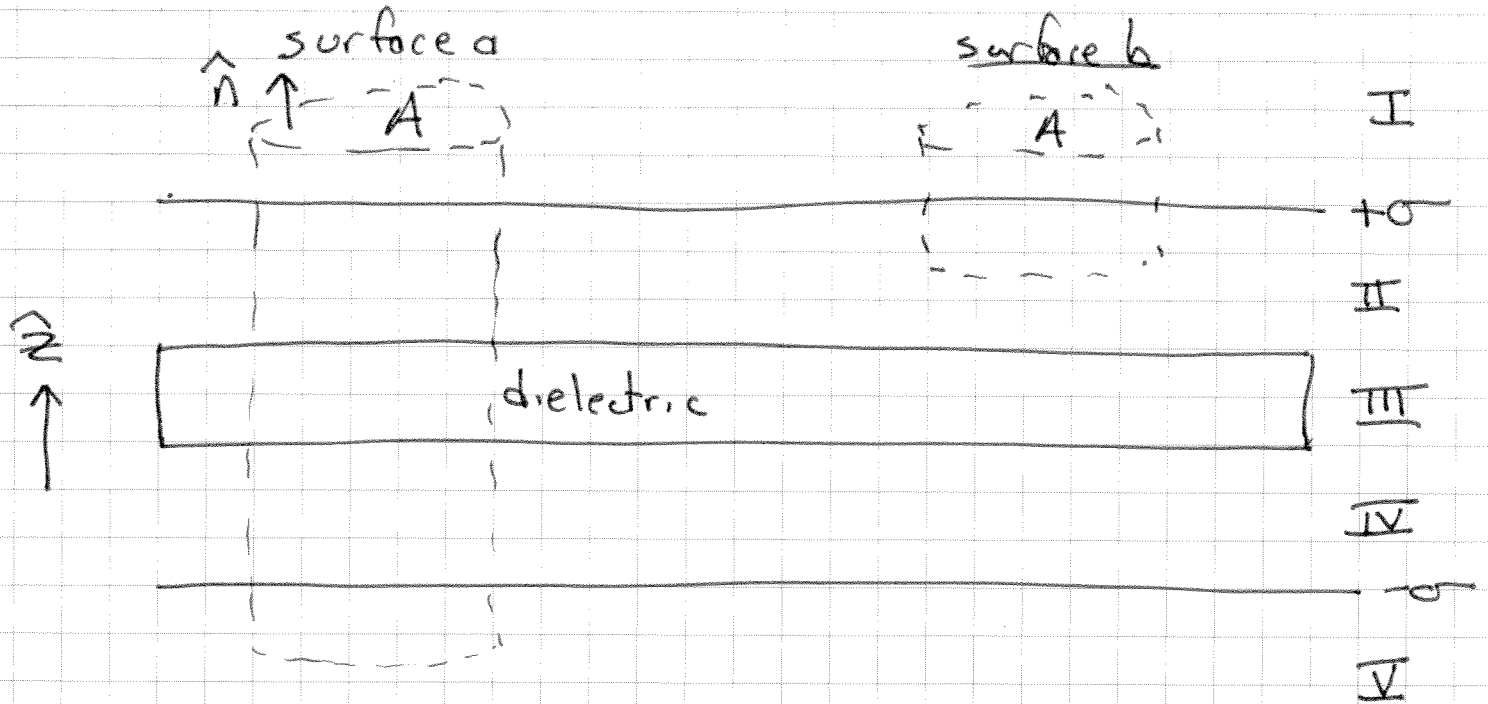 surface a
surface b
n̂
A
A
I
+σ
II
ẑ
dielectric
III
IV
-σ
V